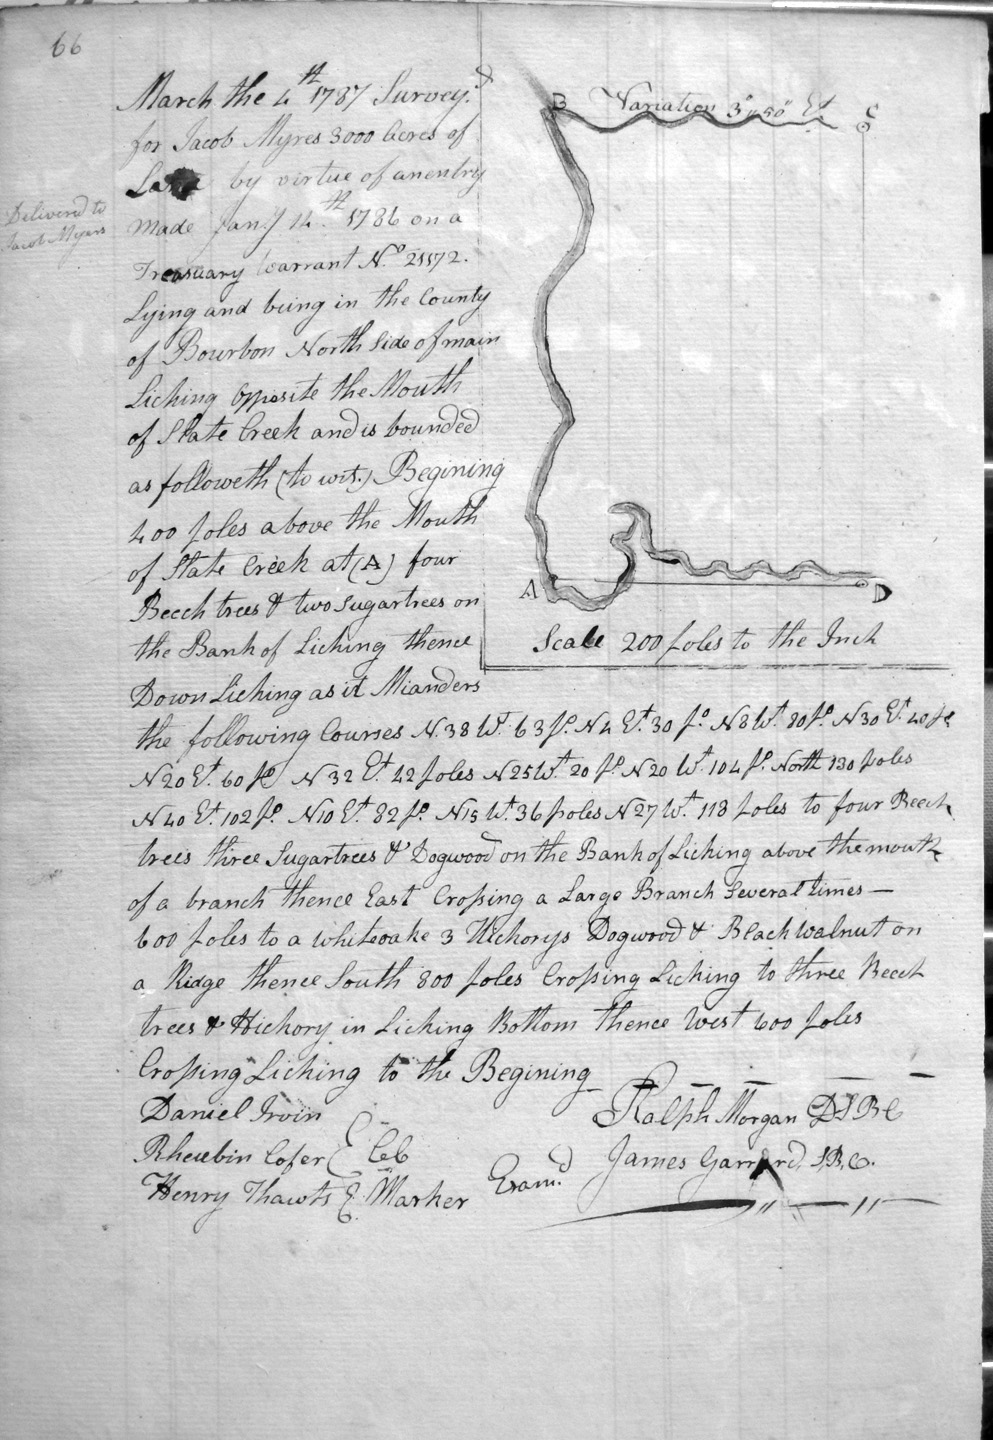 66
March the 4th 1787 Survey.d
for Jacob Myres 3000 Acres of
Land by virtue of an entry
made Jan.y 14th 1786 on a
Treasuary Warrant No. 21172.
Lying and being in the County
of Bourbon North Side of main
Liching Opposite the Mouth
of Slate Creek and is bounded
as followeth (to wit.) Begining
400 poles above the Mouth
of Slate Creek at (A) four
Beech trees & two Sugartrees on
the Bank of Liching thence
Down Liching as it Mianders
the following Courses N.38 Wt. 63 po. N4 Et. 30 po N8 Wt. 80 po. N30 Et. 40 po
N20 Et. 60 po N32 Et. 42 poles N25 Wt. 20 po N20 Wt. 104 po. North 130 poles
N40 Et. 102 po. N10 Et. 82 po. N15 Wt. 36 poles N27 Wt. 118 poles to four Beech
trees three Sugartrees & Dogwood on the Bank of Liching above the mouth
of a branch thence East Crossing a Large Branch Several times —
600 poles to a whiteoake 3 Hickorys Dogwood & Black walnut on
a Ridge thence South 800 poles Crossing Liching to three Beech
trees & Hickory in Liching Bottom thence West 600 poles
Crossing Liching to the Begining
Daniel Irvin
Rheubin Cofer } CC
Henry Thawts Marker
Ralph Morgan DSBC
Exam.d James Garrard S.B.C.
Delivered to
Jacob Myars
B Variation 3° 50" Et. C
A D
Scale 200 poles to the Inch